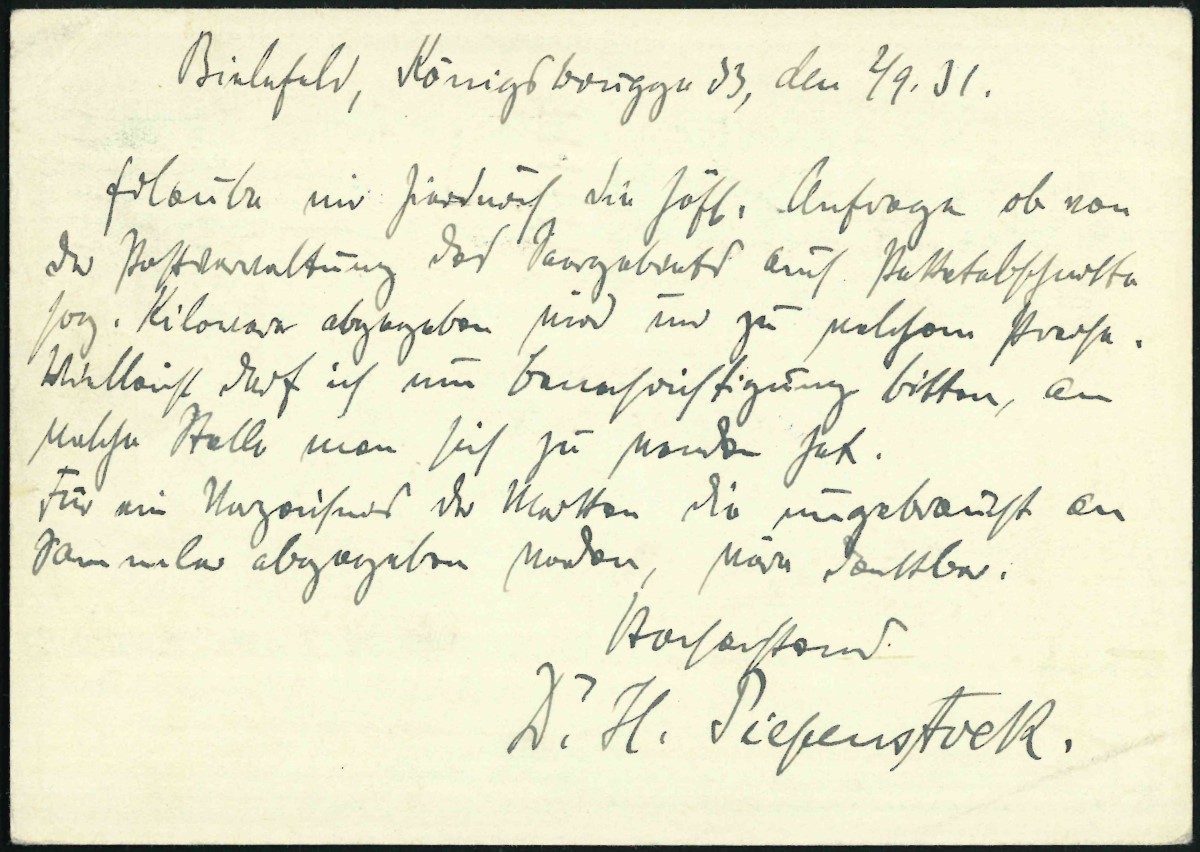 Bielefeld, Königsbrügge 33, den 2/9. 31.
Erlaube mir hierdurch die höfl. Anfrage ob von
der Postverwaltung des Saargebiets auch Paketabschnitte
sog. Kiloware abgegeben wird und zu welchem Preise.
Vielleicht darf ich um Benachrichtigung bitten, an
welche Stelle man sich zu wenden hat.
Für ein Verzeichnis der Marken die ungebraucht an
Sammler abgegeben werden, wäre dankbar.
Hochachtend
Dr. H. Piepenstock.